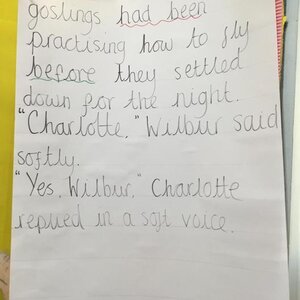 goslings had been
practising how to fly
before they settled
down for the night.
"Charlotte," Wilbur said
softly.
"Yes, Wilbur," Charlotte
replied in a soft voice.